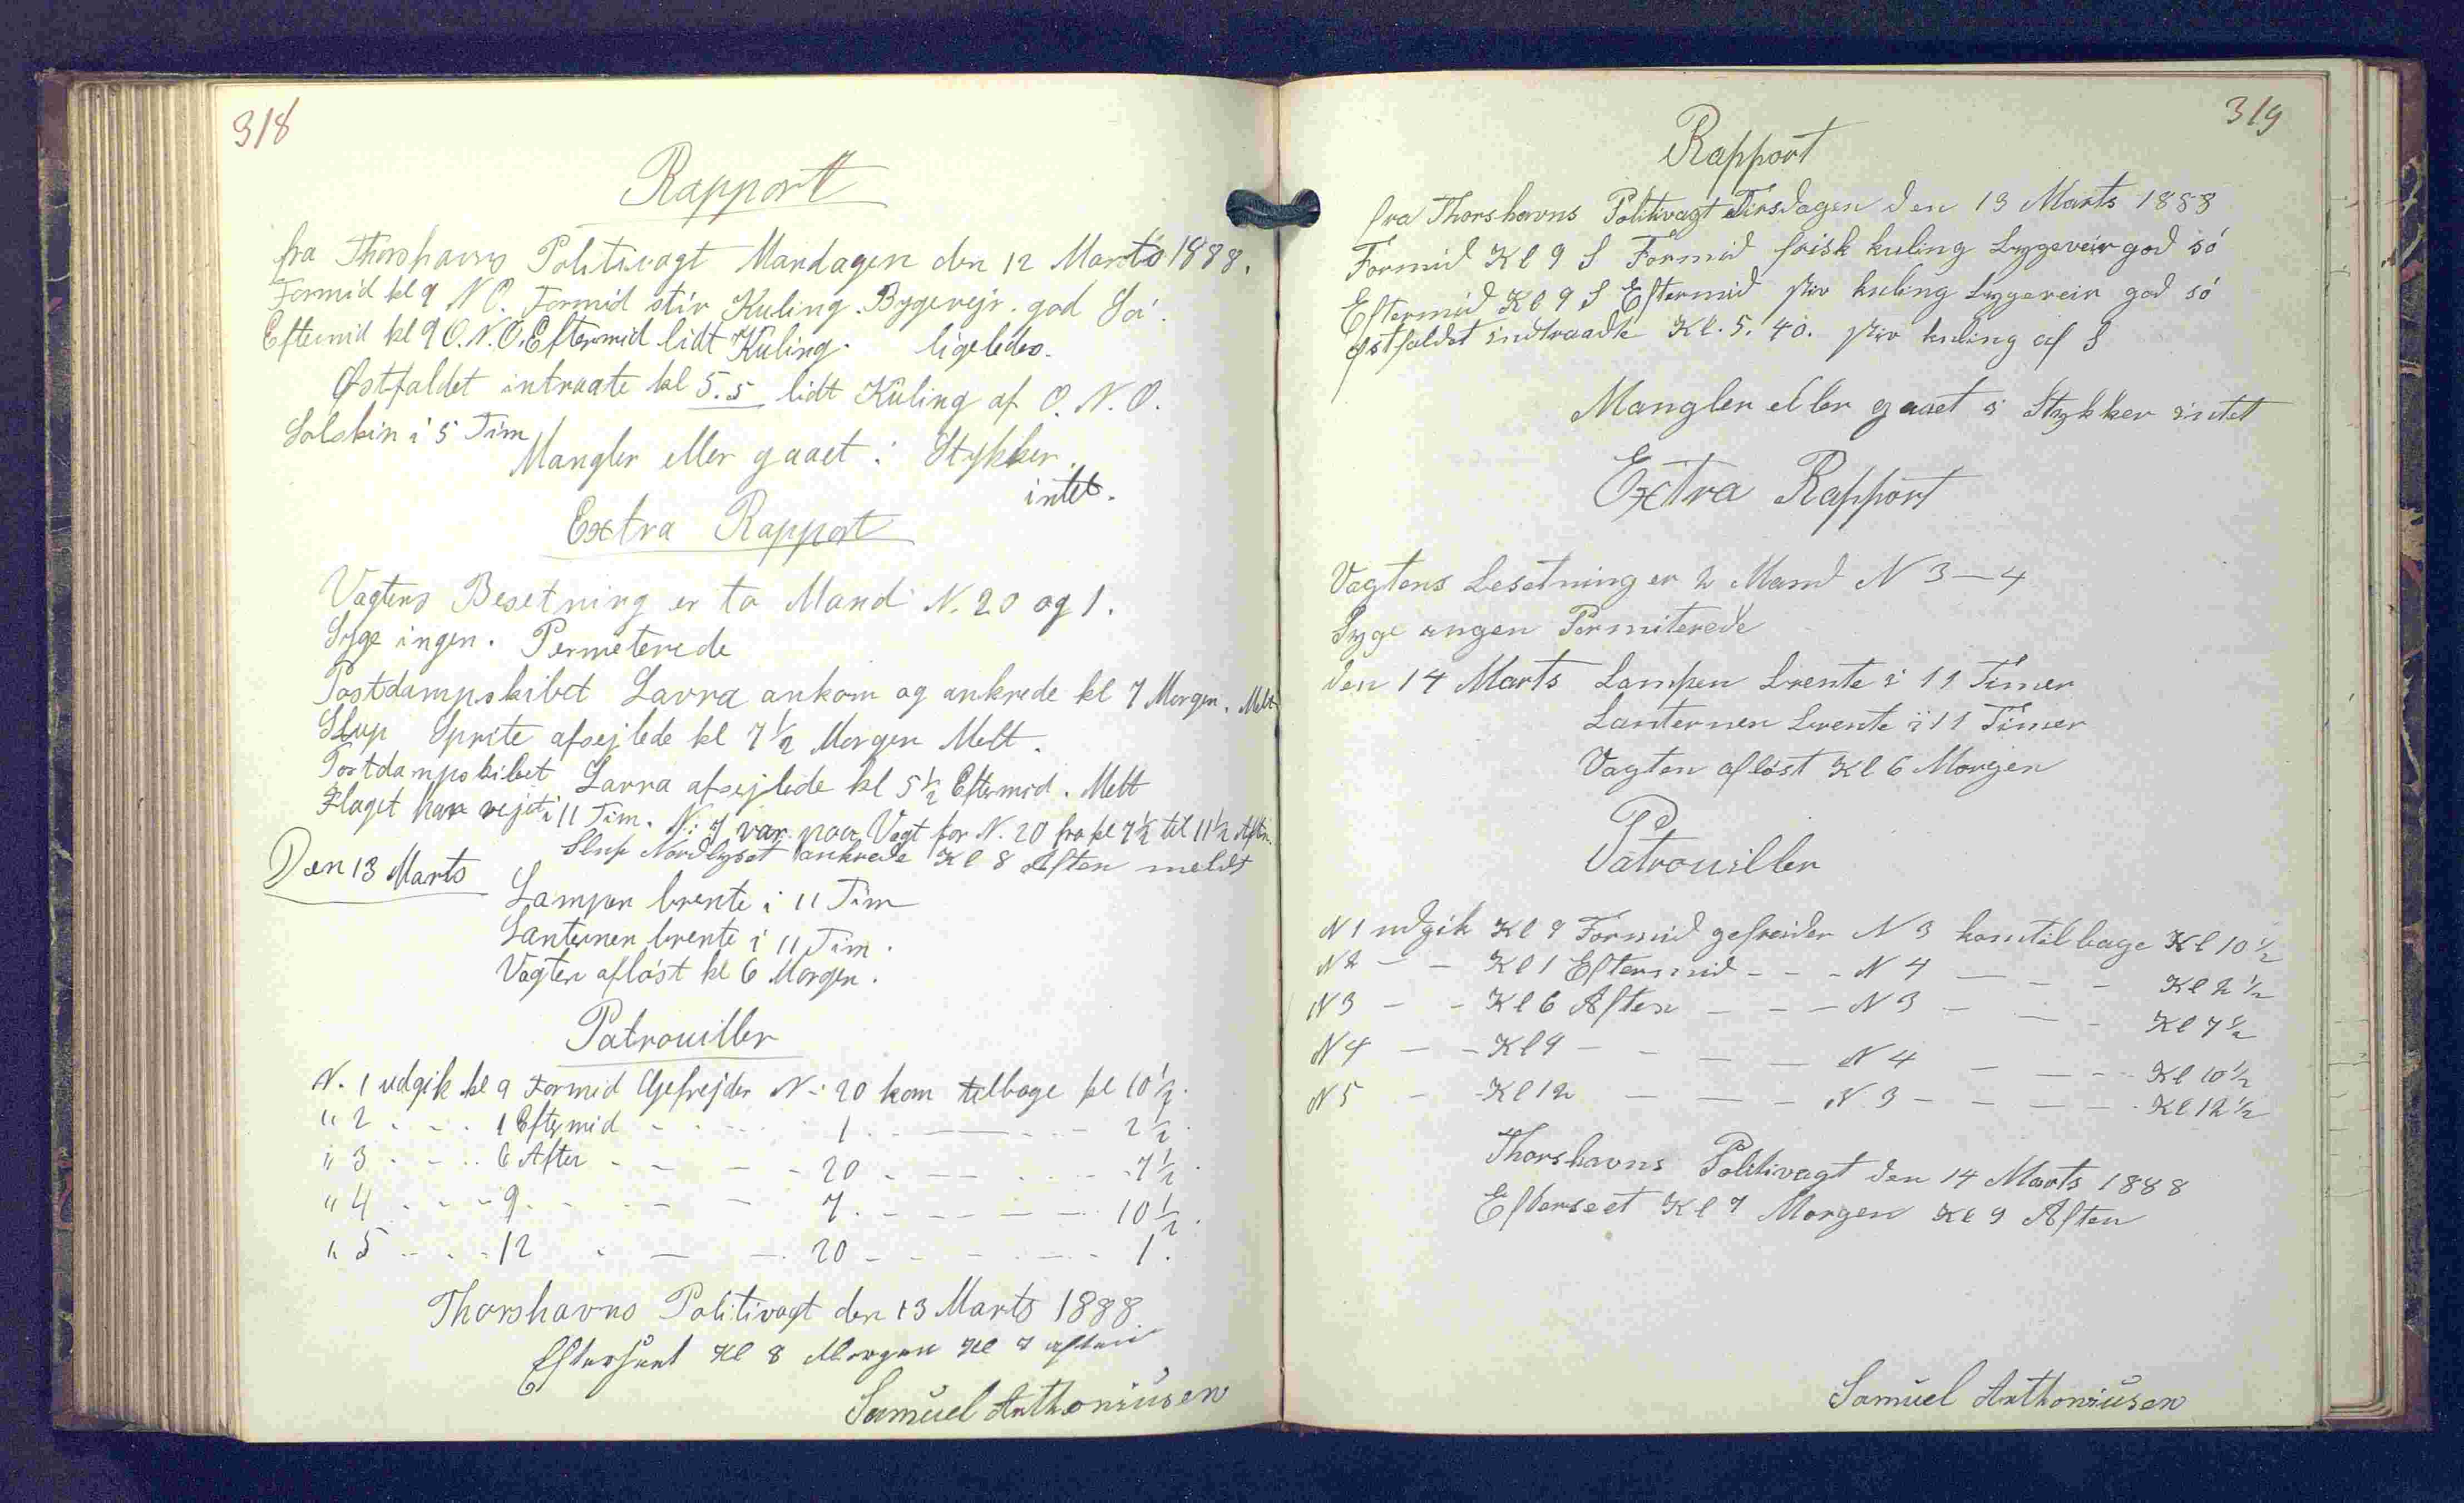 318
Rapport
fra Thorshavns Politivagt Mandagen den 12 Marts 1888.
Formid kl 9 N O. Formid stiv Kuling. Bygevejr. god Sø.
Eftermid kl 9 O.N.O. Eftermid lidt Kuling. ligeledes.
Østfaldet intraate kl 5.5 lidt Kuling af O. N. O.
Solskin i 5 Tim
Mangler eller gaaet i Stykker
intet.
Extra Rapport
Vagtens Besetning er to Mand N. 20 og 1.
Syge ingen. Permeterede
Postdampskibet Lavra ankom og ankrede kl 7 Morgen. Melt
Slup Sprite afsejlede kl 7 1/2 Morgen Melt.
Postdampskibet Lavra afsejlede kl 5 1/2 Eftermid. Melt
Flaget har vejet i 11 Tim. N: 7 var paa Vagt for N. 20 fra kl 7 1/2 til 11 1/2 Aften.
Slup Nordlyset ankrede Kl 8 Aften meldt
Den 13 Marts
Lampen brente i 11 Tim
Lanternen brente i 11 Tim.
Vagten afløst kl 6 Morgen.
Patrouiller
N. 1 udgik kl 9 Formid Gefrejder N: 20 kom tilbage kl 10 1/2.
" 2 - - - 1 Eftermid - - - 1 - - - 2 1/2.
" 3 - - - 6 Aften - - - 20 - - - 7 1/2.
" 4 - - - 9 - - - 7 - - - 10 1/2.
" 5 - - - 12 - - - 20 - - - 1.
Thorshavns Politivagt den 13 Marts 1888.
Efterseet Kl 8 Morgen Kl 7 aften
Samuel Anthoniusen
319
Rapport
fra Thorshavns Politivagt Tirsdagen den 13 Marts 1888
Formid Kl 9 S Formid frisk kuling bygeveir god sö
Eftermid Kl 9 S Eftermid stiv kuling bygeveir god sö
Østfaldet indtraadte Kl. 5. 40. stiv kuling af S
Mangler eller gaaet i Stykker intet
Extra Rapport
Vagtens besetning er 2 Mand N 3 — 4
Syge ingen Permiterede
den 14 Marts Lampen brente i 11 Timer
Lanternen brente i 11 Timer
Vagten afløst Kl 6 Morgen
Patrouiller
N 1 udgik Kl 9 Formid gefreider N 3 kom tilbage Kl 10 1/2
N 2 - - Kl 1 Eftermid - - - N 4 - - - Kl 2 1/2
N 3 - - Kl 6 Aften - - - N 3 - - - Kl 7 1/2
N 4 - - Kl 9 - - - N 4 - - - Kl 10 1/2
N 5 - - Kl 12 - - - N 3 - - - Kl 12 1/2
Thorshavns Politivagt den 14 Marts 1888
Efterseet Kl 7 Morgen Kl 9 Aften
Samuel Anthoniusen